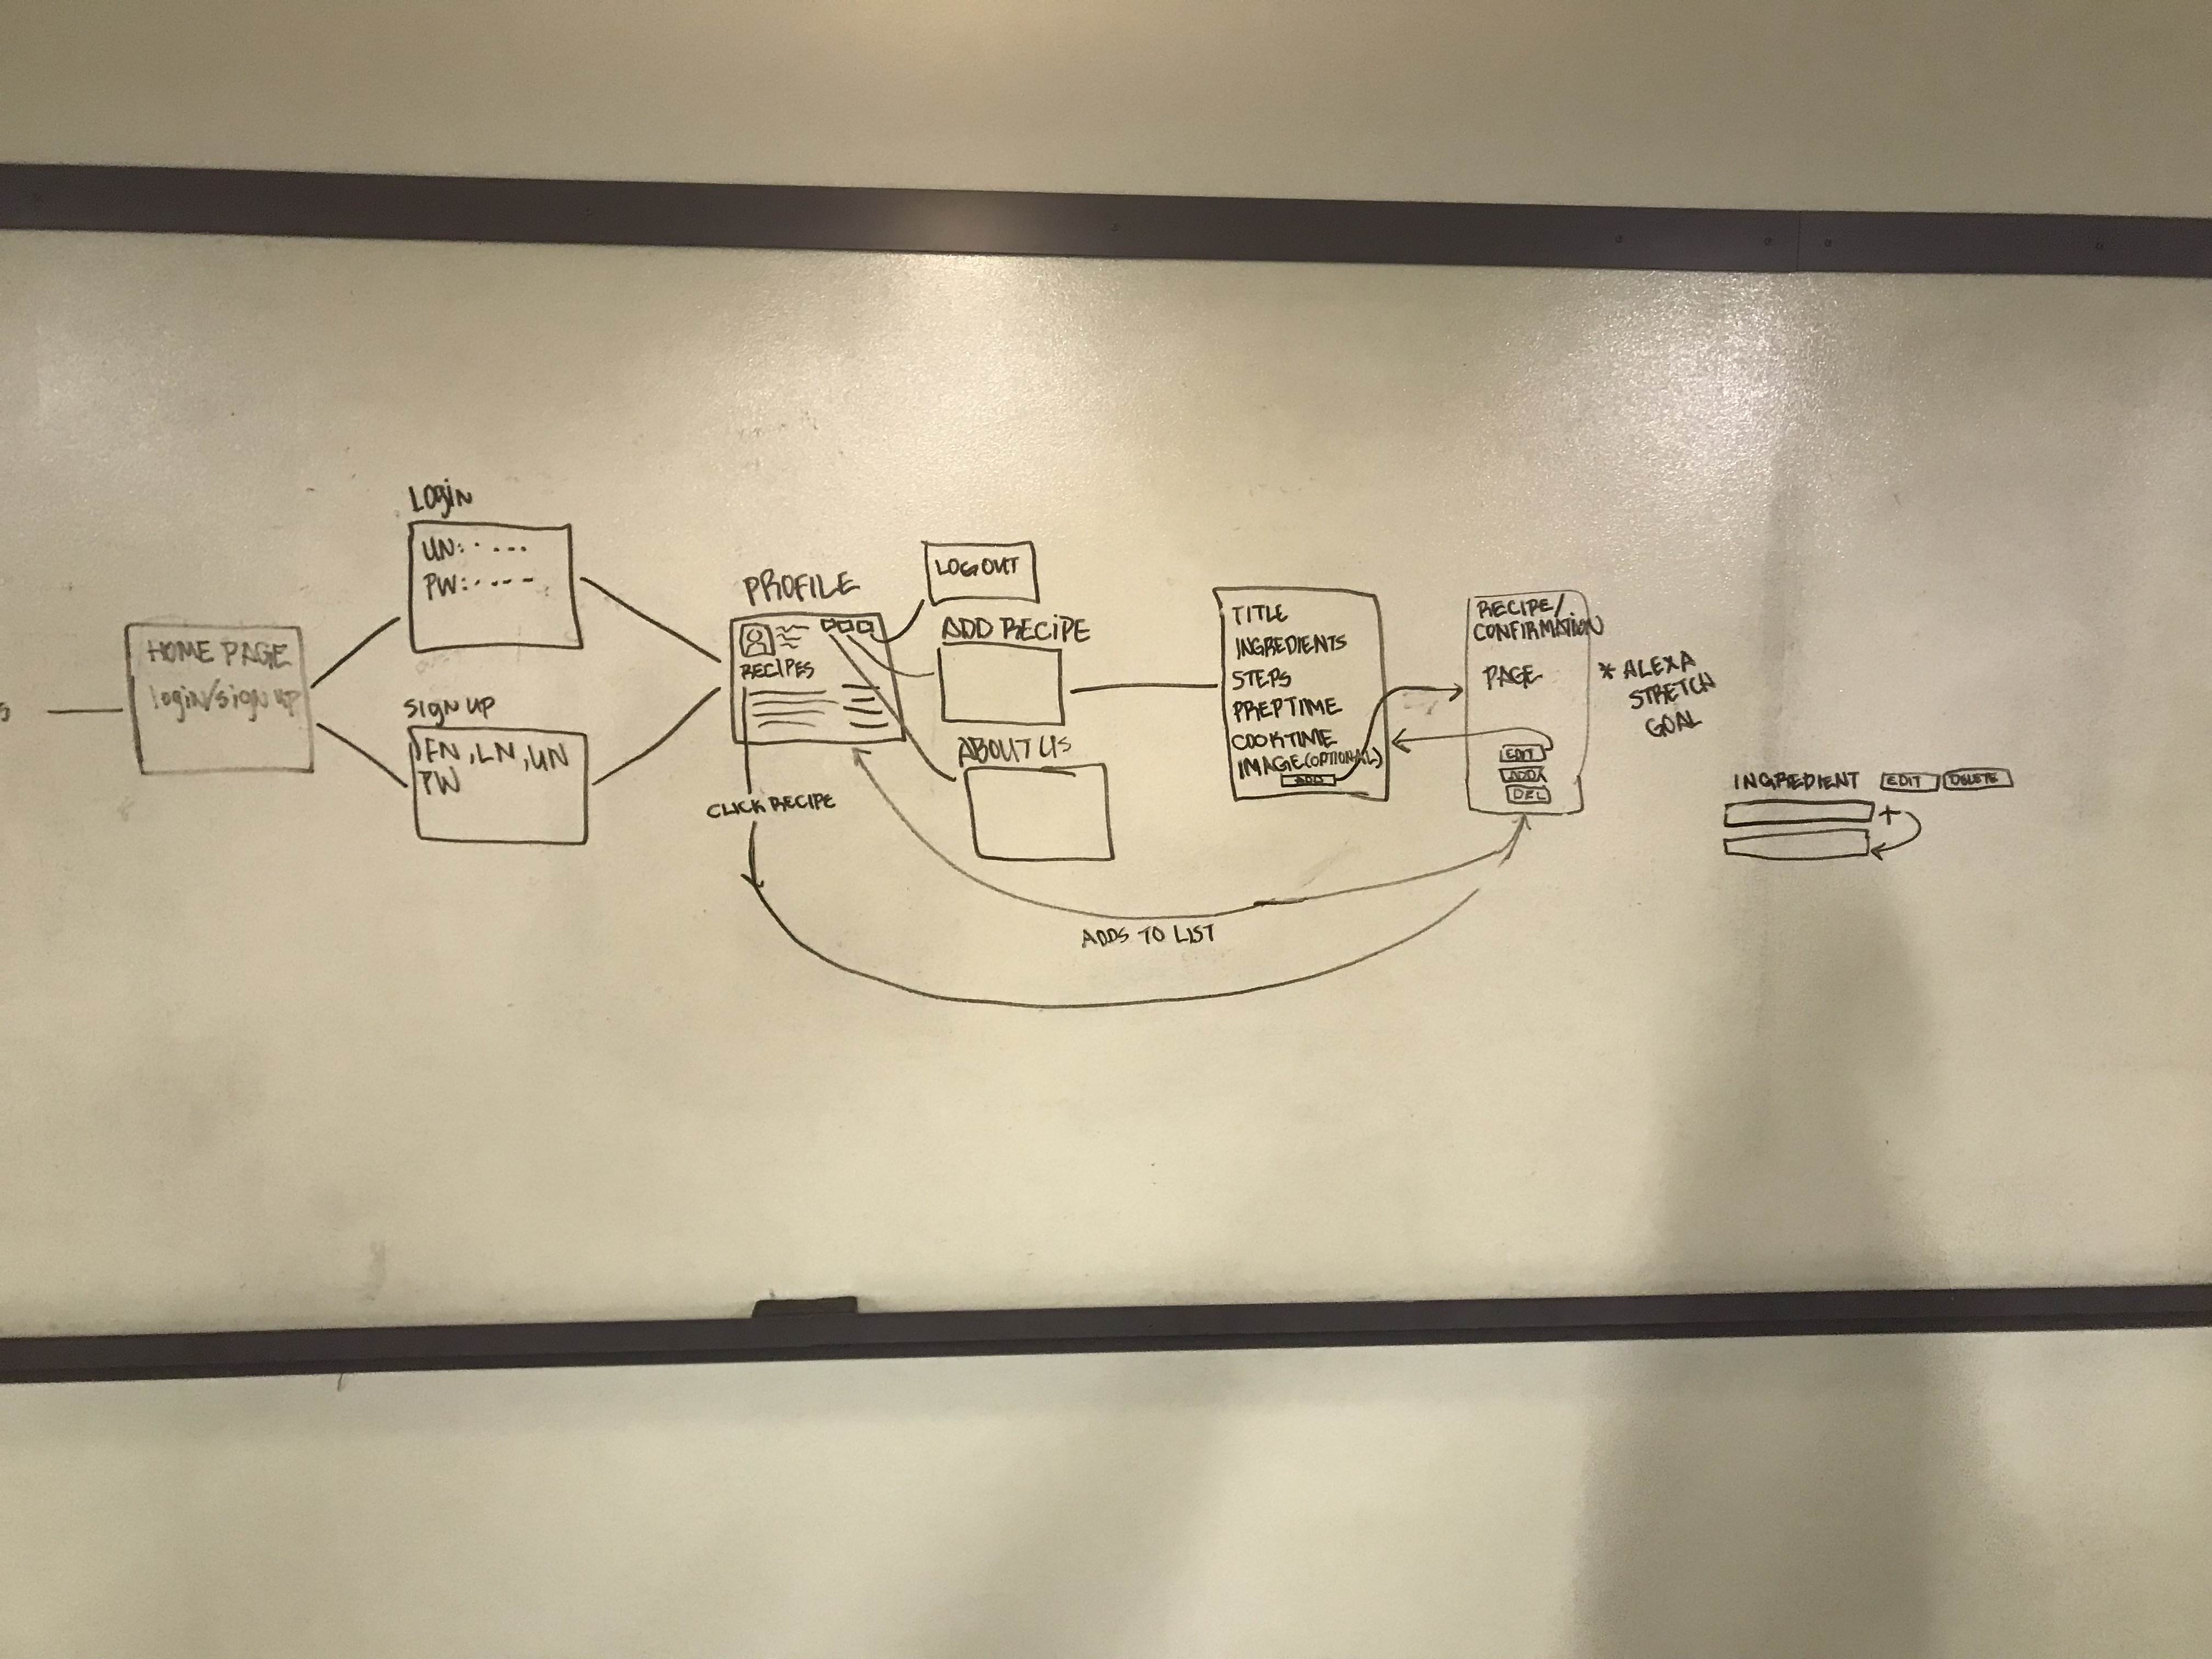 S
HOME PAGE
login/sign up
Login
UN:
PW:
sign up
FN, LN, UN
PW
PROFILE
RECIPES
CLICK RECIPE
LOGOUT
ADD RECIPE
ABOUT US
TITLE
INGREDIENTS
STEPS
PREPTIME
COOKTIME
IMAGE(OPTIONAL)
ADD
RECIPE/
CONFIRMATION
PAGE
EDIT
ADD
DEL
* ALEXA
STRETCH
GOAL
ADDS TO LIST
INGREDIENT EDIT DELETE
+